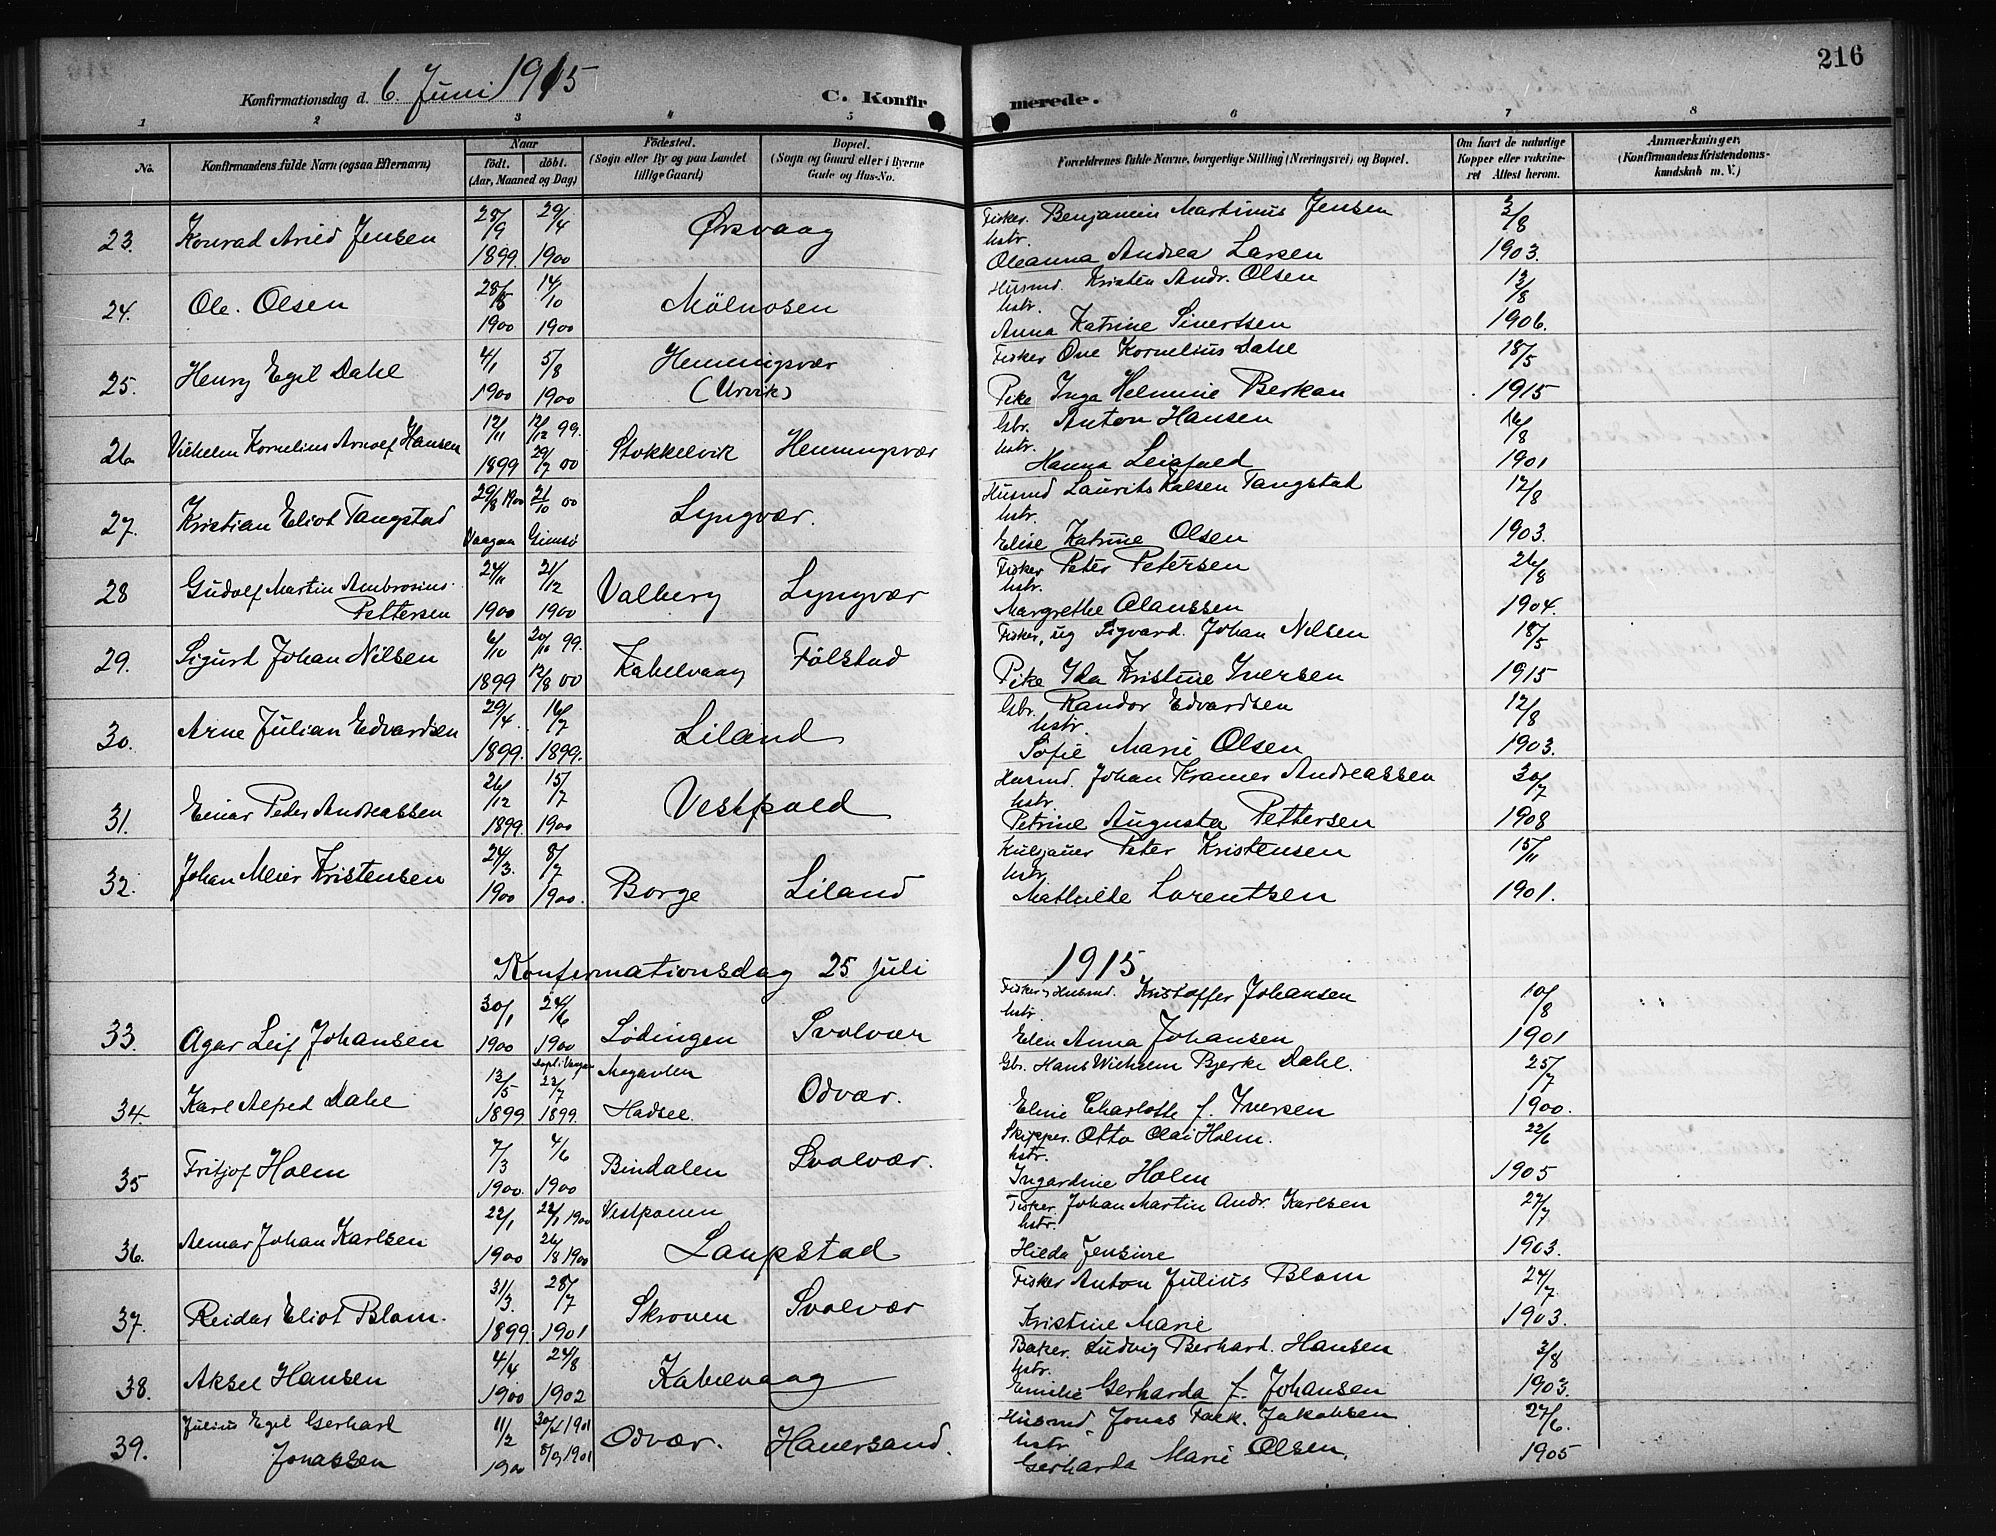 216
Konfirmationsdag d. 6. Juni 1915
C. Konfirmerede.
1 2 3 4 5 6 7 8
No.
Konfirmandens fulde Navn (ogsaa Efternavn)
Naar
født. døbt.
(Aar, Maaned og Dag)
Fødested.
(Sogn eller By og paa Landet
tillige Gaard)
Bopæl.
(Sogn og Gaard eller i Byerne
Gade og Hus-No.
Forældrenes fulde Navne, borgerlige Stilling (Næringsvei) og Bopæl.
Om havt de naturlige
Kopper eller vakcine-
ret Attest herom.
Anmærkninger,
(Konfirmandens Kristendoms-
kundskab m. V.)
23. Konrad Arild Jensen 28/9 1899. 29/4 1900 Ørsvaag Fisker. Benjamin Martinus Jensen hstr. Oleanna Andrea Larsen 3/8 1903.
24. Ole. Olsen 1900 14/10 1900 Mölnosen Husmd. Kristen Andr. Olsen hstr. Anna Katrine Sivertsen 13/8 1906.
25. Henry Egil Dahl 4/1 1900 5/8 1900 Henningsvær (Urvik) Fisker Ove Kornelius Dahl Pike Inga Helmine Berkan 18/5 1915
26 Vilhelm Kornelius Arnolf Hansen 12/11 1899 12/12 99. 29/7 00 Stokkelvik Henningsvær Gbr. Anton Hansen hstr. Hanna Leigfald 16/8 1901
27. Kristian Eliot Tangstad 29/8 1900 Vaagan 21/10 00 Gimsö Lyngvær. Husmd Laurits Kalsen Tangstad hstr. Elise Katrine Olsen 12/8 1903.
28 Gudolf Martin Ambrosius Pettersen 24/11 1900 21/12 1900 Valberg Lyngvær Fisker Peter Petersen hstr. Margrethe Olaussen 26/8 1904.
29. Sigurd Johan Nilsen 6/10 1899 20/10 99. 12/8 00 Kabelvaag Fölstad Fisker, ug Sigvard. Johan Nilsen Pike Ida Kristine Iversen 18/5 1915
30. Arne Julian Edvardsen 29/4. 1899. 16/7 1899. Liland Gbr. Randor Edvardsen hstr. Sofie Marie Olsen 12/8 1903.
31. Einar Peder Andreassen 26/12 1899. 15/7 1900 Vestpold Husmd. Johan Kramer Andreassen hstr. Petrine Augusta Pettersen 30/7 1908
32. Johan Meier Kristensen 24/3. 1900 8/7 1900. Borge Liland Peter Kristensen hstr. Mathilde Lorentsen 15/11 1901.
Konfirmationsdag 25 Juli 1915
33. Agar Leif Johansen 30/1 1900 24/6 1900 Lødingen Svolvær Fisker, Husmd. Kristoffer Johansen hstr. Elen Anna Johansen 10/8 1901
34. Karl Alfred Dahl 13/5 1899 22/7 1899. Hadsel. Odvær. Gbr. Hans Wilhelm Bjerke Dahl. Eline Charlotte f. Iversen 25/7 1900.
35 Fritjof Holm 7/3 1900. 4/6 1900 Bindalen Svolvær. Skipper. Otto Olai Holm. hstr. Ingardine Holm 22/6 1905
36. Aenar Johan Karlsen 22/1 1900 22/1 1900 26/8 1900 Vestpollen Laupstad Fisker. Johan Martin Andr. Karlsen hstr. Hilda Jensine 27/7 1903.
37. Reidar Eliot Blom. 31/3. 1899. 28/7 1901 Skroven Svolvær Fisker Anton Julius Blom Kristine Marie 24/7 1903.
38. Aksel Hansen 4/4 1900 24/8 1902 Kabelvaag Baker. Ludvig Berhard. Hansen hstr. Emilie Gerharda f. Johansen 3/8 1903.
39. Julius Egil Gerhard Jonassen 11/2 1900 1901 8/9 1901 Odvær. Hauersand. Husmd. Jonas Falk. Jakobsen hstr Gerharda Marie Olsen. 27/6. 1905